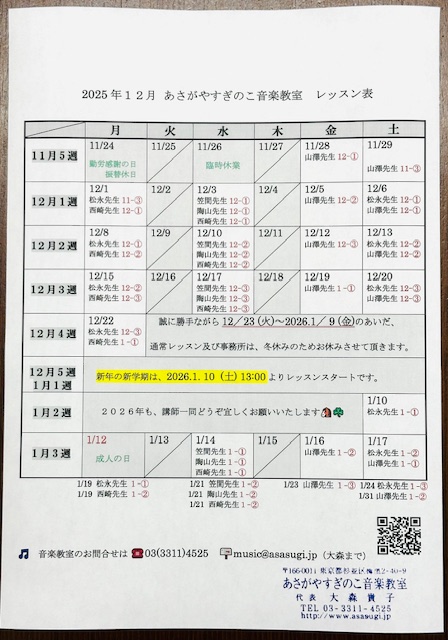 2025年12月 あさがやすぎのこ音楽教室 レッスン表
月 火 水 木 金 土
11月5週 11/24 11/25 11/26 11/27 11/28 11/29
勤労感謝の日 臨時休業 山澤先生 12-①
振替休日 山澤先生 11-③
12月1週 12/1 12/2 12/3 12/4 12/5 12/6
松永先生 11-③ 笠間先生 12-① 山澤先生 12-② 松永先生 12-①
西崎先生 12-① 陶山先生 12-① 山澤先生 12-①
西崎先生 12-①
12月2週 12/8 12/9 12/10 12/11 12/12 12/13
松永先生 12-① 笠間先生 12-② 山澤先生 12-③ 松永先生 12-②
西崎先生 12-② 陶山先生 12-② 山澤先生 12-②
西崎先生 12-②
12月3週 12/15 12/16 12/17 12/18 12/19 12/20
松永先生 12-② 笠間先生 12-③ 山澤先生 1-① 松永先生 12-③
西崎先生 12-③ 陶山先生 12-③ 山澤先生 12-③
西崎先生 12-③
12月4週 12/22 誠に勝手ながら 12/23(火)~2026.1/9(金)のあいだ、
松永先生 12-③
西崎先生 1-① 通常レッスン及び事務所は、冬休みのためお休みさせて頂きます。
12月5週
1月1週 新年の新学期は、2026.1.10(土)13:00よりレッスンスタートです。
1月2週 2026年も、講師一同どうぞ宜しくお願いいたします 1/10
松永先生 1-①
1月3週 1/12 1/13 1/14 1/15 1/16 1/17
成人の日 笠間先生 1-① 山澤先生 1-② 松永先生 1-②
陶山先生 1-① 山澤先生 1-①
西崎先生 1-①
1/19 松永先生 1-① 1/21 笠間先生 1-② 1/23 山澤先生 1-③ 1/24 松永先生 1-③
1/19 西崎先生 1-② 1/21 陶山先生 1-② 1/31 山澤先生 1-②
1/21 西崎先生 1-②
音楽教室のお問合せは 03(3311)4525 music@asasugi.jp(大森まで)
〒166-0011 東京都杉並区梅里2-40-9
あさがやすぎのこ音楽教室
代表 大森貴子
TEL 03-3311-4525
http://www.asasugi.jp